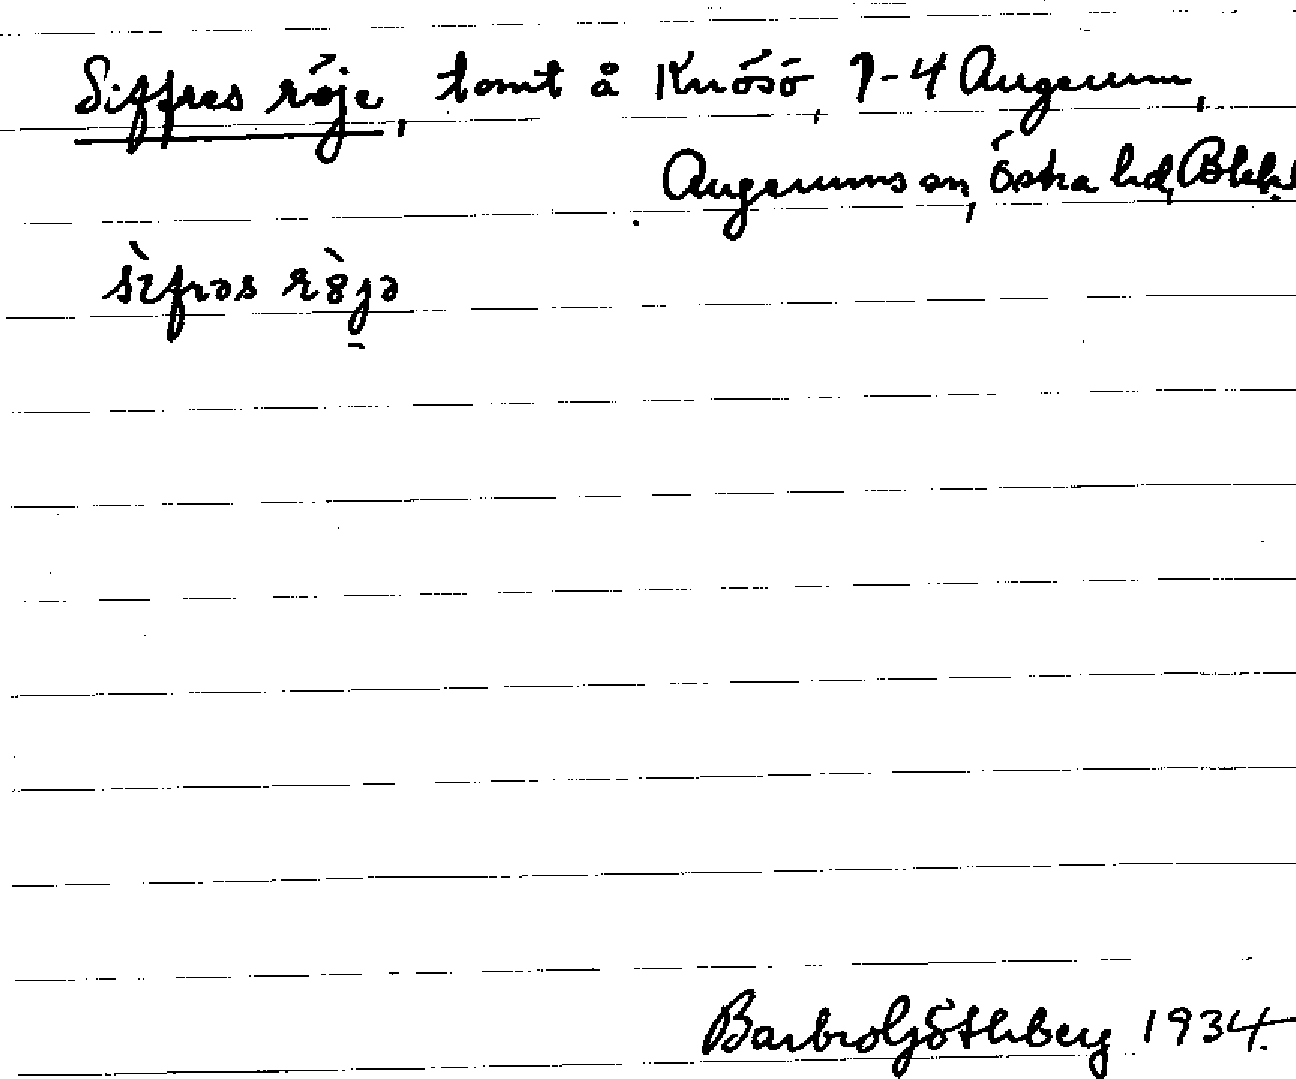 Siffres röje, tomt å Knösö, 1-4 Augerum,
Augerums sn, Östra hd, Blek.
sìfrəs rö̀jə
Barbro Göthberg 1934.